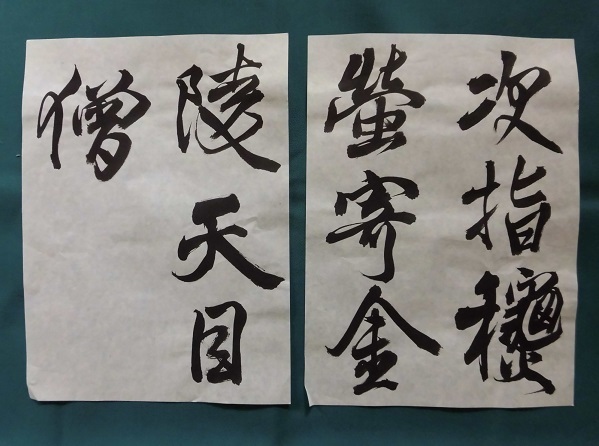 次指𥤛
螢寄金
陵天目
僧